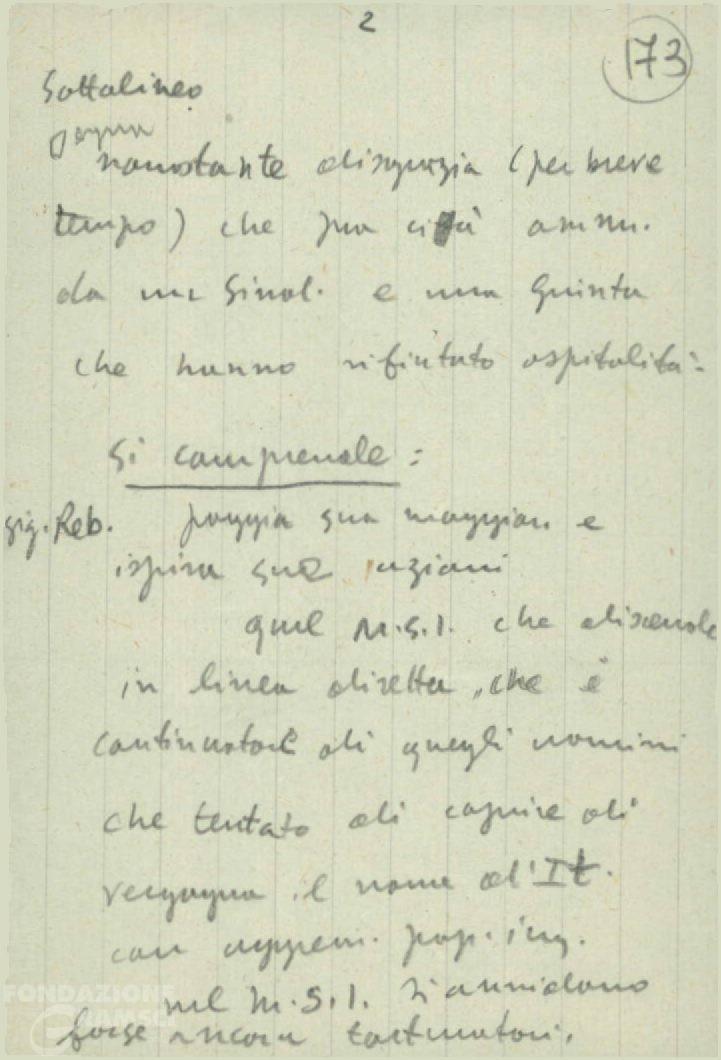 2
173
Sottolineo
nonostante disgrazia (per breve
tempo) che sua città amm.
da un Sind. e una Giunta
che hanno rifiutato ospitalità.
Si comprende:
sig. Reb. poggia sua maggior. e
ispira sue azioni
quel M.S.I. che discende
in linea diretta, che è
continuatore di quegli uomini
che tentato di coprire di
vergogna il nome d'It.
con aggres. pop. 
nel M.S.I. si annidano
forse ancora torturatori.
FONDAZIONE
GRAMSCI